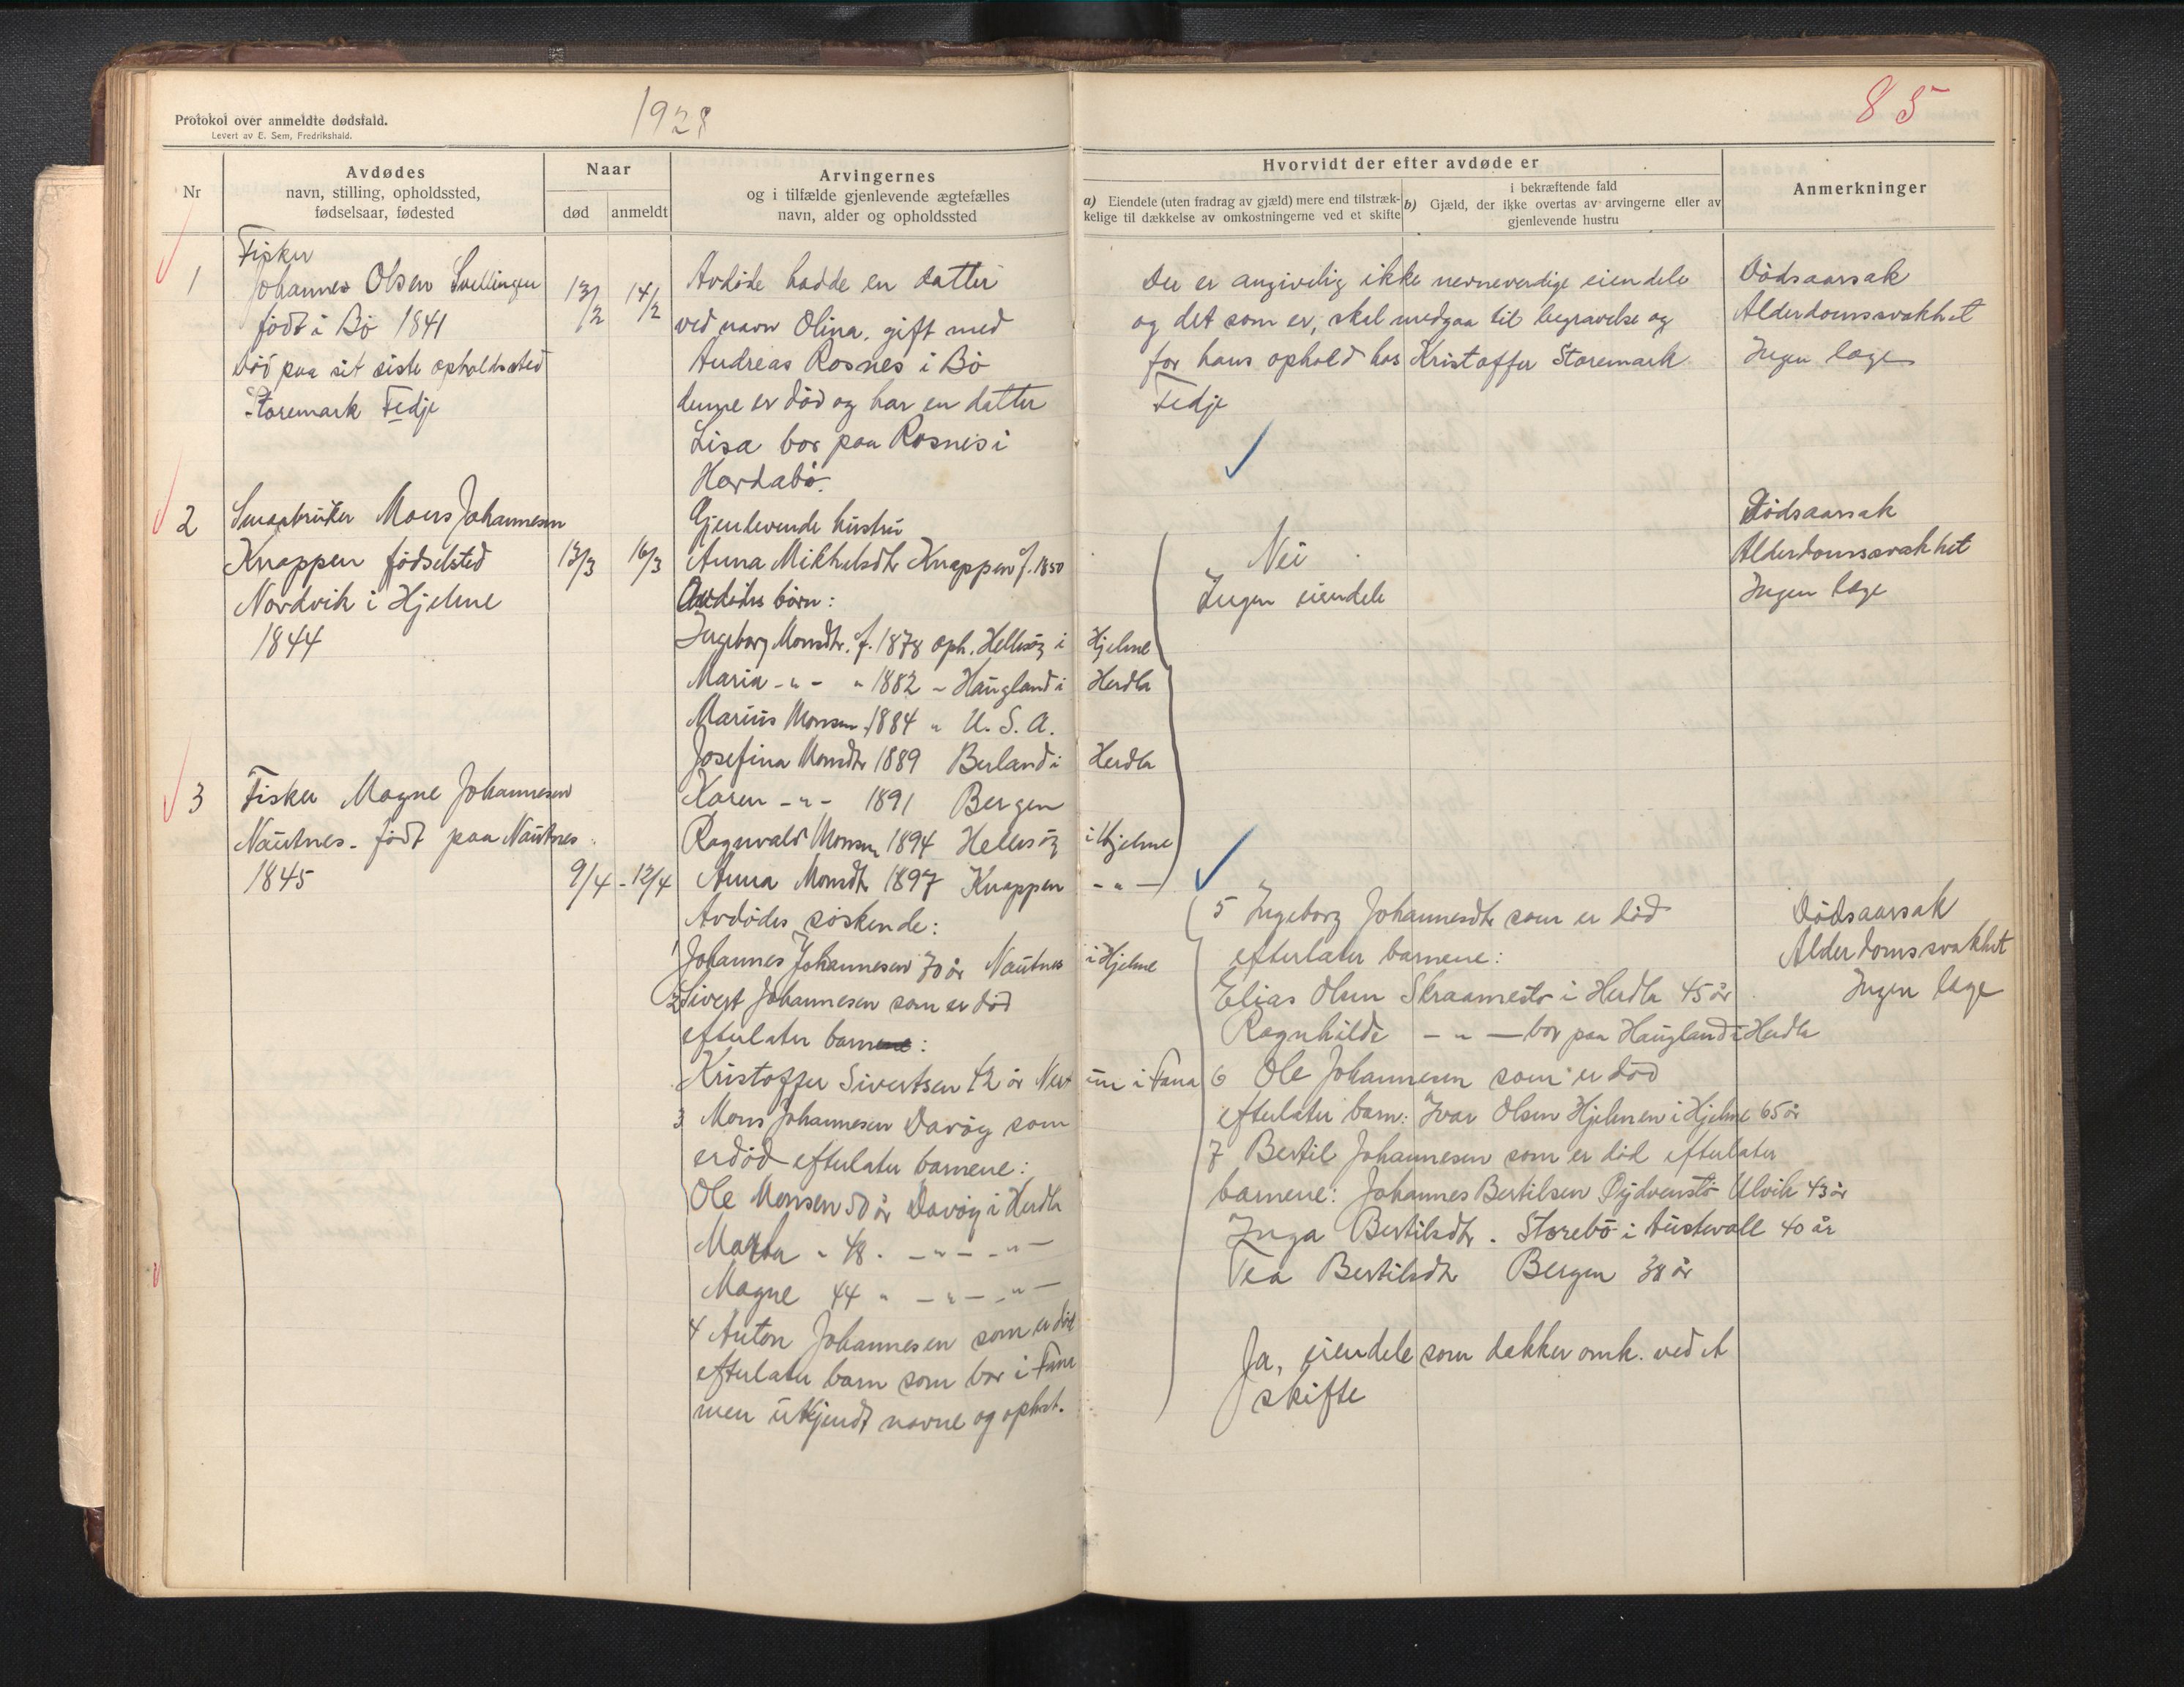 Protokol over anmeldte dødsfald.
Levert av E. Sem, Fredrikshald.
1928
85
Nr
Avdødes
navn, stilling, opholdssted,
fødselsaar, fødested
Naar
død
anmeldt
Arvingernes
og i tilfælde gjenlevende ægtefælles
navn, alder og opholdssted
Hvorvidt der efter avdøde er
a) Eiendele (uten fradrag av gjæld) mere end tilstræk-
kelige til dækkelse av omkostningerne ved et skifte
i bekræftende fald
b) Gjæld, der ikke overtas av arvingerne eller av
gjenlevende hustru
Anmerkninger
1
Fisker
Johannes Olsen Svellingen
født i Bø 1841
død paa sit siste opholdssted
Storemark Fedje
13/2
14/2
Avdøde hadde en datter
ved navn Olina, gift med
Andreas Rosnes i Bø
denne er død og har en datter
Lisa bor paa Rosnes i
Hordabø.
Der er angivelig ikke nevneverdige eiendele
og det som er, skal medgaa til begravelse og
for hans ophold hos Kristoffer Storemark
Fedje
Dødsaarsak
Alderdomssvakhet
Ingen læge
2
Smaabruker Mons Johannesen
Knappen fødselsted
Nordvik i Hjelme
1844
13/3
16/3
Gjenlevende hustru
Anna Mikkelsdtr Knappen f. 1850
Avdødes børn:
Ingeborg Monsdtr. f. 1878 oph. Hellesøy i Hjelme
Maria - " - " 1882 - Haugland i Herdla
Marius Monsen 1884 " U.S.A.
Josefina Monsdtr 1889 Berland i Herdla
Karen - " - 1891 Bergen
Ragnvald Monsen 1894 Hellesøy i Hjelme
Anna Monsdtr 1897 Knappen - " -
Nei
Ingen eiendele
Dødsaarsak
Alderdomssvakhet
Ingen læge
3
Fisker Magne Johannesen
Nautnes - født paa Nautnes
1845
9/4 - 12/4
Avdødes søskende:
1 Johannes Johannesen 70 år Nautnes i Hjelme
2 Sivert Johannesen som er død
efterlater barnene:
Kristoffer Sivertsen 42 år Nesttun i Fana
3 Mons Johannesen Davøy som
er død efterlater barnene:
Ole Monsen 50 år Davøy i Herdla
Marta " 48 " - " - - " -
Magne 44 " - " - - " -
4 Anton Johannesen som er død
efterlater barn som bor i Fana
men ukjendt navne og ophst.
5 Ingeborg Johannesdtr som er død
efterlater barnene:
Elias Olsen Skraamestø i Herdla 45 år
Ragnhilde - " - bor paa Haugland i Herdla
6 Ole Johannesen som er død
efterlater barn: Ivar Olsen Hjelmen i Hjelme 65 år
7 Bertil Johannesen som er død efterlater
barnene: Johannes Bertilsen Ulvik 43 år
Inga Bertilsdtr. Storebø i Austevoll 40 år
Tea Bertilsdtr Bergen 38 år
Ja, eiendele som dekker omk. ved et
skifte
Dødsaarsak
Alderdomssvakhet
Ingen læge